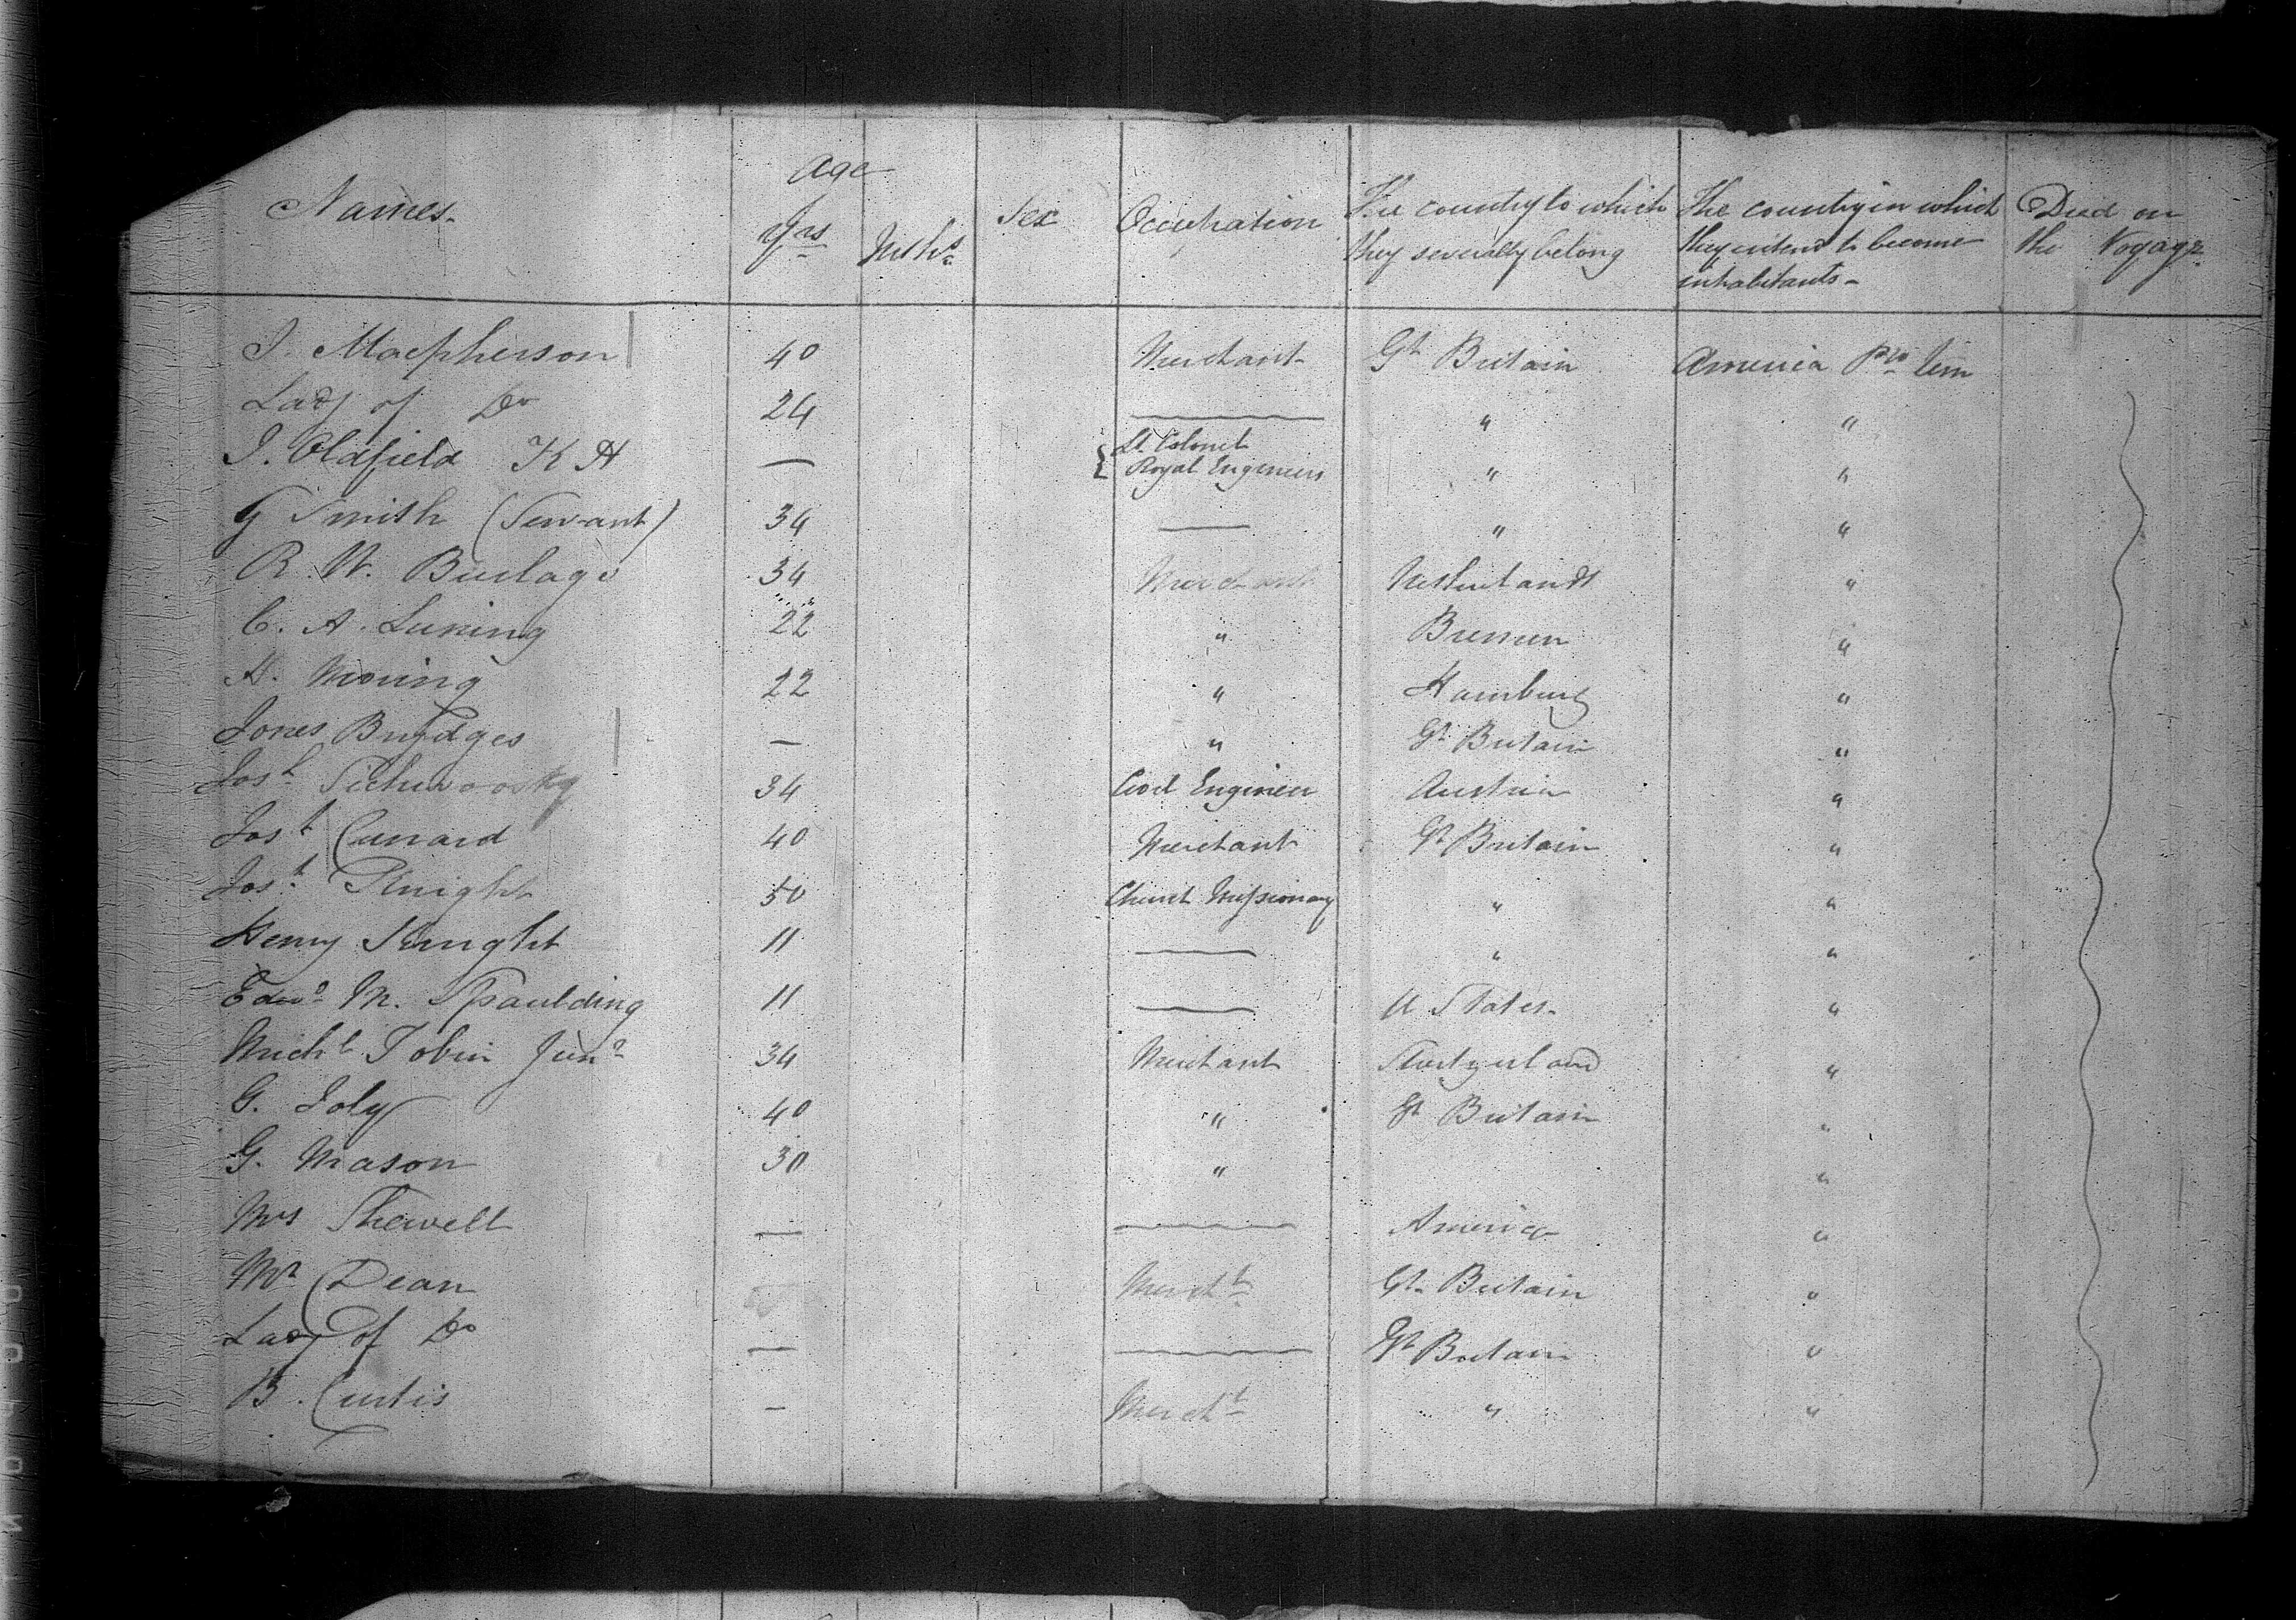 Names- Age Yrs Mths Sex Occupation The country to which they severally belong The country in which they intend to become inhabitants- Died on the Voyage-
J. Macpherson 40 Merchant Gt Britain America Pro Tem
Lady of Do 24 — " "
J. Oldfield K H — { Lt Colonel Royal Engineers " "
G Smith (Servant) 34 — " "
R. W. Burlage 34 Merchant Netherlands "
C. A. Luning 22 " Bremen "
H. Moring 22 " Hamburg "
Jones Bridges — " Gt Britain "
Josh 34 Civil Engineer Austria "
Josh Cunard 40 Merchant Gt Britain "
Josh Knight 50 Church Missionary " "
Henry Knight 11 — " "
Edwd M. Spaulding 11 — U States- "
Michl Tobin Junr 34 Merchant Switzerland "
G. Joly 40 " Gt Britain "
G. Mason 30 " "
Mrs Shewell — — America "
Mr Dean Mercht Gt Britain "
Lady of Do — — Gt Britain "
B. Curtis — Mercht " "